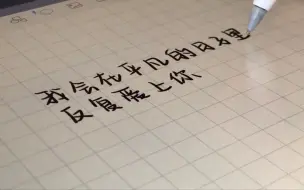 我会在平凡的日子里
反复爱上你